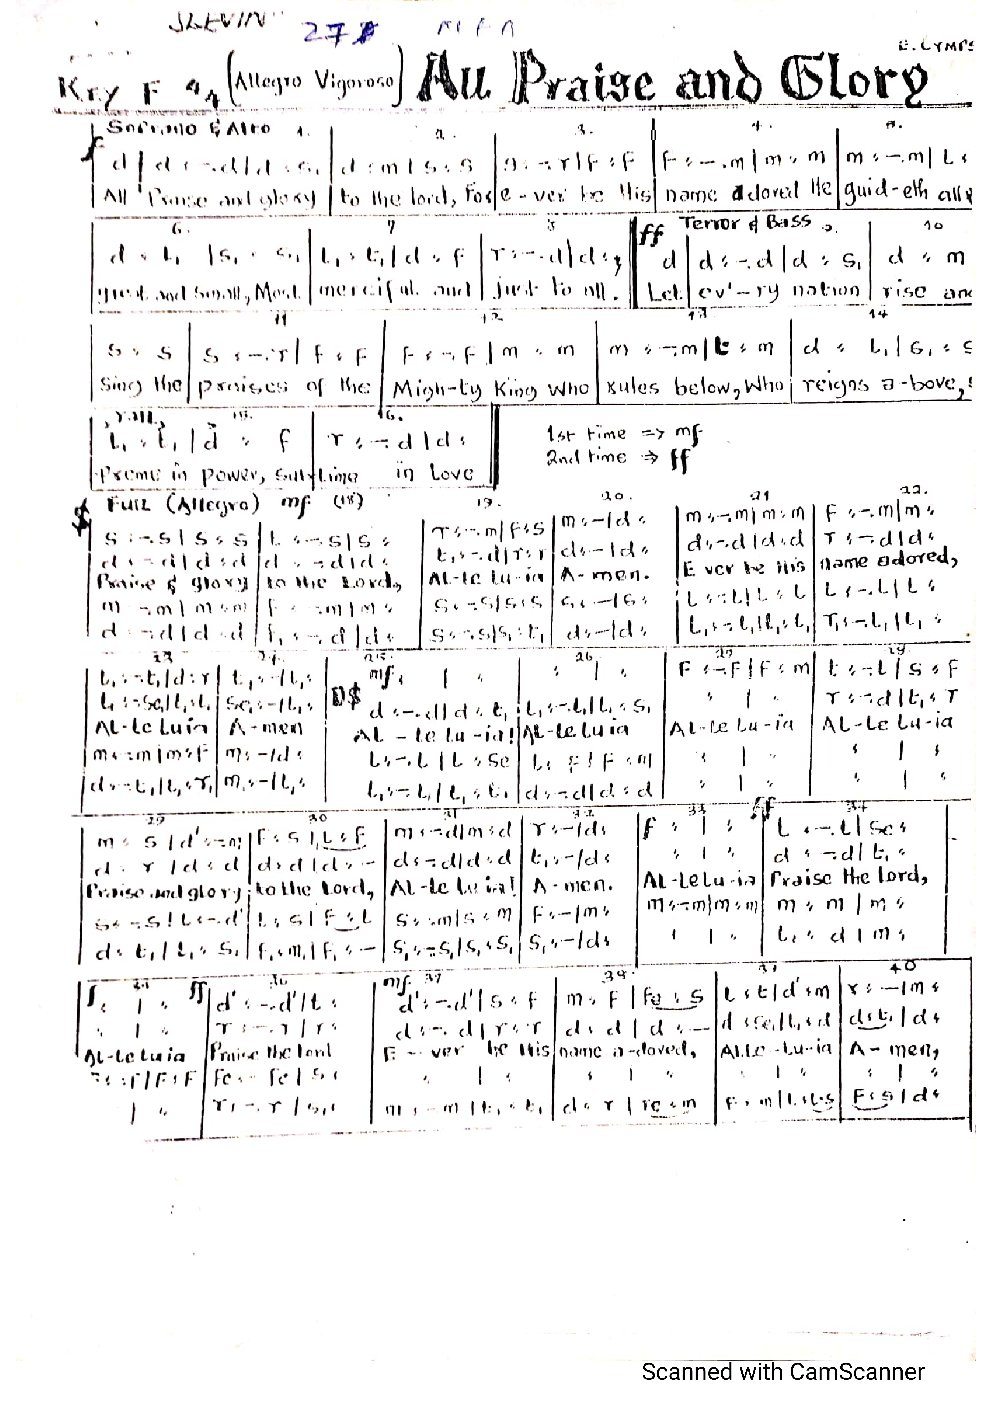 SLEVIN 27
E. LYMPS
Key F 4/4 (Allegro Vigoroso) All Praise and Glory
Soprano & Alto 1. 2. 3. 4. 5.
f d | d :-.d | d : s, | d : m | s : s | s :-.r | f : f | f :-.m | m : m | m :-.m | l :
All Praise and glory to the lord, For e-ver be His name adored He guid-eth all
6. 7 8 ff Terror & Bass 9. 10
d : l, | s, : s, | l, : t, | d : f | r :-.d | d : | d | d :-.d | d : s, | d : m
great and small, Most merciful and just to all. Let ev'-ry nation rise and
11 12 13 14
s : s | s :-.r | f : f | f :-.f | m : m | m :-.m | l : m | d : l, | s, : s
Sing the praises of the Migh-ty King who rules below, Who reigns a-bove, S
rall. 15. 16.
l, : t, | d : f | r :-.d | d :
Preme in power, Sub-lime in Love
1st time => mf
2nd time => ff
$ Full (Allegro) mf (18) 19. 20. 21 22.
s :-.s | s : s | l :-.s | s : | r :-.m | f : s | m :- | d : | m :-.m | m : m | f :-.m | m :
d :-.d | d : d | d :-.d | d : | t, :-.d | r : r | d :- | d : | d :-.d | d : d | r :-.d | d :
Praise & glory to the Lord, Al-le lu-ia A-men. E ver be His name adored,
m :-.m | m : m | f :-.m | m : | s :-.s | s : s | s :- | s : | l :-.l | l : l | l :-.l | l :
d :-.d | d : d | f, :-.d | d : | s :-.s | s, : t, | d :- | d : | l, :-.l, | l, : l, | r, :-.l, | l, :
23 24. 25. 26. 27 28.
t, :-.t, | d : r | t, :- | l, : | mf : | : | : | : | f :-.f | f : m | l :-.l | s : f
l, :-.se, | l, : l, | se, :- | l, : | D$ d :-.d | d : t, | l, :-.l, | l, : s, | : | : | r :-.d | t, : r
Al-le luia A-men Al-le lu-ia! Al-le luia Al-le lu-ia Al-le lu-ia
m :-.m | m : f | m :- | d : | l :-.l | l : se | l : f | f : m | : | : | : | :
d :-.t, | l, : r, | m, :- | l, : | l, :-.l, | l, : t, | d :-.d | d : d | : | : | : | :
29 30 31 32 33 ff 34
m : s | d' :-.m | f : s | l : f | m :-.d | m : d | r :- | d : | f : | : | l :-.l | se :
d : r | d : d | d : d | d :- | d :-.d | d : d | t, :- | d : | : | : | d :-.d | t, :
Praise and glory to the Lord, Al-le lu ia! A-men. Al-le lu-ia Praise the lord,
s :-.s | l :-.d' | l : s | f : l | s :-.m | s : m | f :- | m : | m :-.m | m : m | m : m | m :
d : t, | l, : s, | f, : m, | f, :- | s, :-.s, | s, : s, | s, :- | d : | : | : | l, : d | m :
f. 35 ff 36 mf. 37 38. 39 40
: | : | d' :-.d' | t : | d' :-.d' | s : f | m : f | fe : s | l : t | d' : m | r :- | m :
: | : | r :-.r | r : | d :-.d | r : r | d : d | d :- | d : se, | l, : d | d : t, | d :
Al-le luia Praise the lord E-ver be His name a-dored, Al-le-lu-ia A-men,
f :-.f | f : f | fe :-.fe | s : | : | : | : | : | : | : | : | :
| : | r :-.r | s, : | m :-.m | t, : t, | d : r | re : m | f : m | l, : l, s | f : s | d :
Scanned with CamScanner